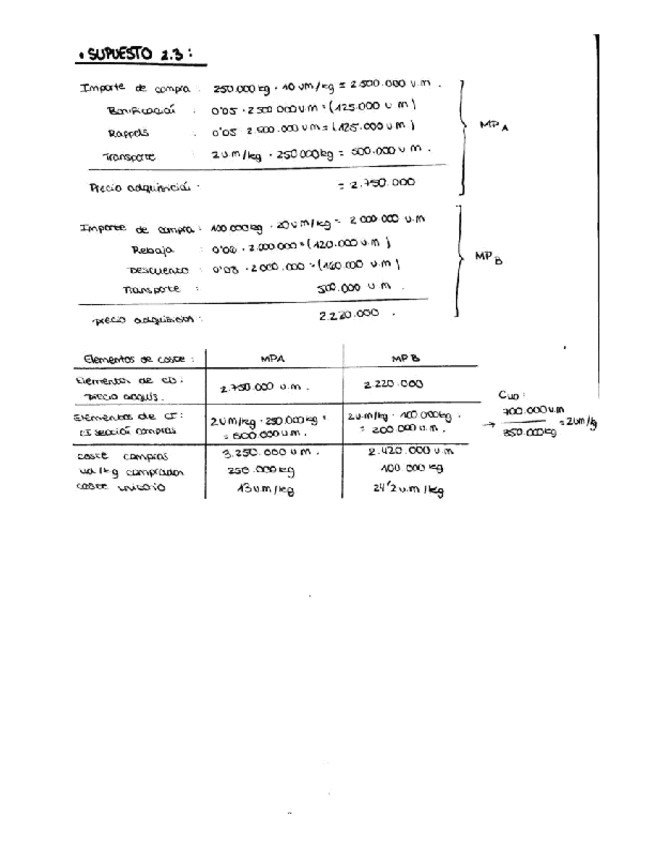 • SUPUESTO 2.3:
Importe de compra: 250.000 kg · 10 um/kg = 2.500.000 u.m.
Bonificación: 0'05 · 2.500.000 u.m = (125.000 u m)
Rappels: 0'05 2.500.000 u.m = (125.000 u m)
Transporte: 2 u m/kg · 250.000 kg = 500.000 u m.
MPA
Precio adquisición: = 2.750.000
Importe de compra: 100.000 kg · 20 u m/kg = 2.000.000 u.m
Rebaja: 0'06 · 2.000.000 = (120.000 u.m)
Descuento: 0'08 · 2.000.000 = (160.000 u.m)
MPB
Transporte: 500.000 u m.
Precio adquisición: 2.220.000.
Elementos de coste: MPA MPB
Elementos de CD: 2.750.000 u.m. 2.220.000
Precio adquis.
Elementos de CI: 2 um/kg · 250.000 kg = 2 u.m/kg · 100.000 kg.
CI sección compras = 500.000 u m. = 200.000 u.m.
CUO:
→ 700.000 u.m
350.000 kg
= 2 um/kg
coste compras 3.250.000 u m. 2.420.000 u.m
ud/kg comprados 250.000 kg 100.000 kg
coste unitario 13 u.m/kg 24'2 u.m/kg